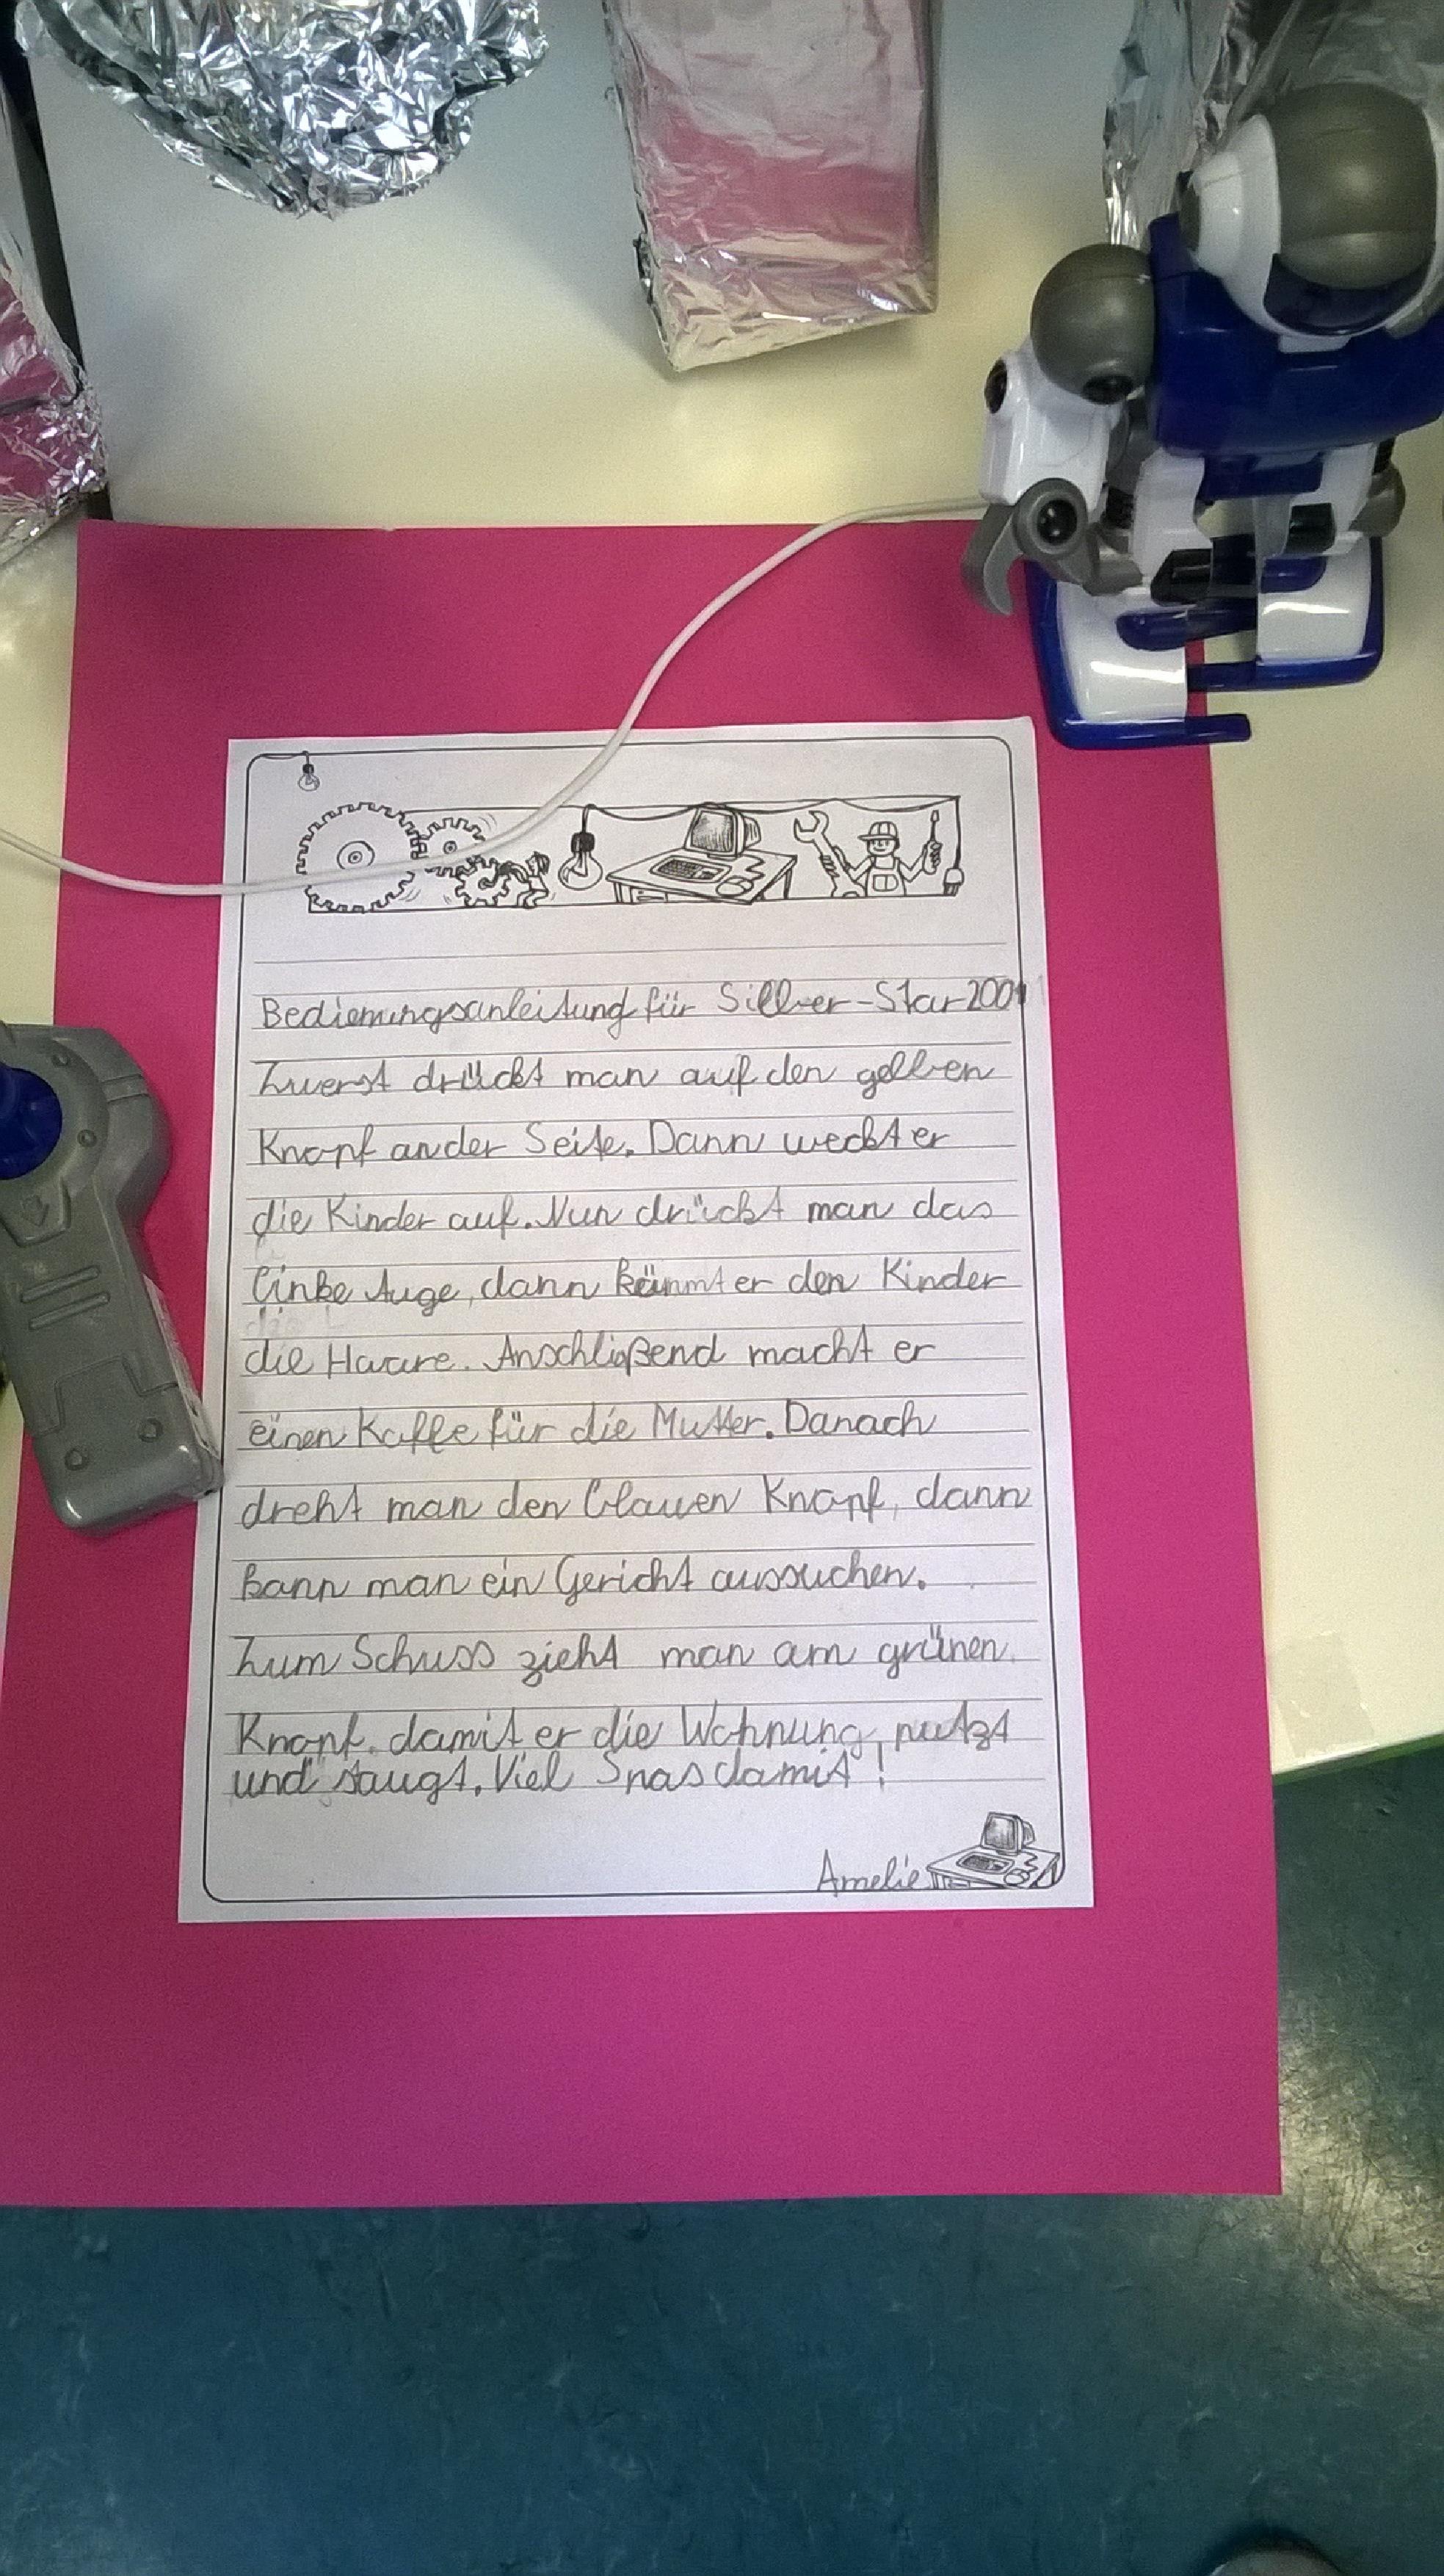 Bedienungsanleitung für Sillver-Star2001
Zuerst drückt man auf den gelben
Knopf an der Seite. Dann weckt er
die Kinder auf. Nun drückt man das
linke Auge, dann kämmt er den Kinder
die Haare. Anschlißend macht er
einen Kaffe für die Mutter. Danach
dreht man den blauen Knopf, dann
kann man ein Gericht aussuchen.
Zum Schuss zieht man am grünen
Knopf, damit er die Wohnung putzt
und saugt. Viel Spas damit!
Amelie